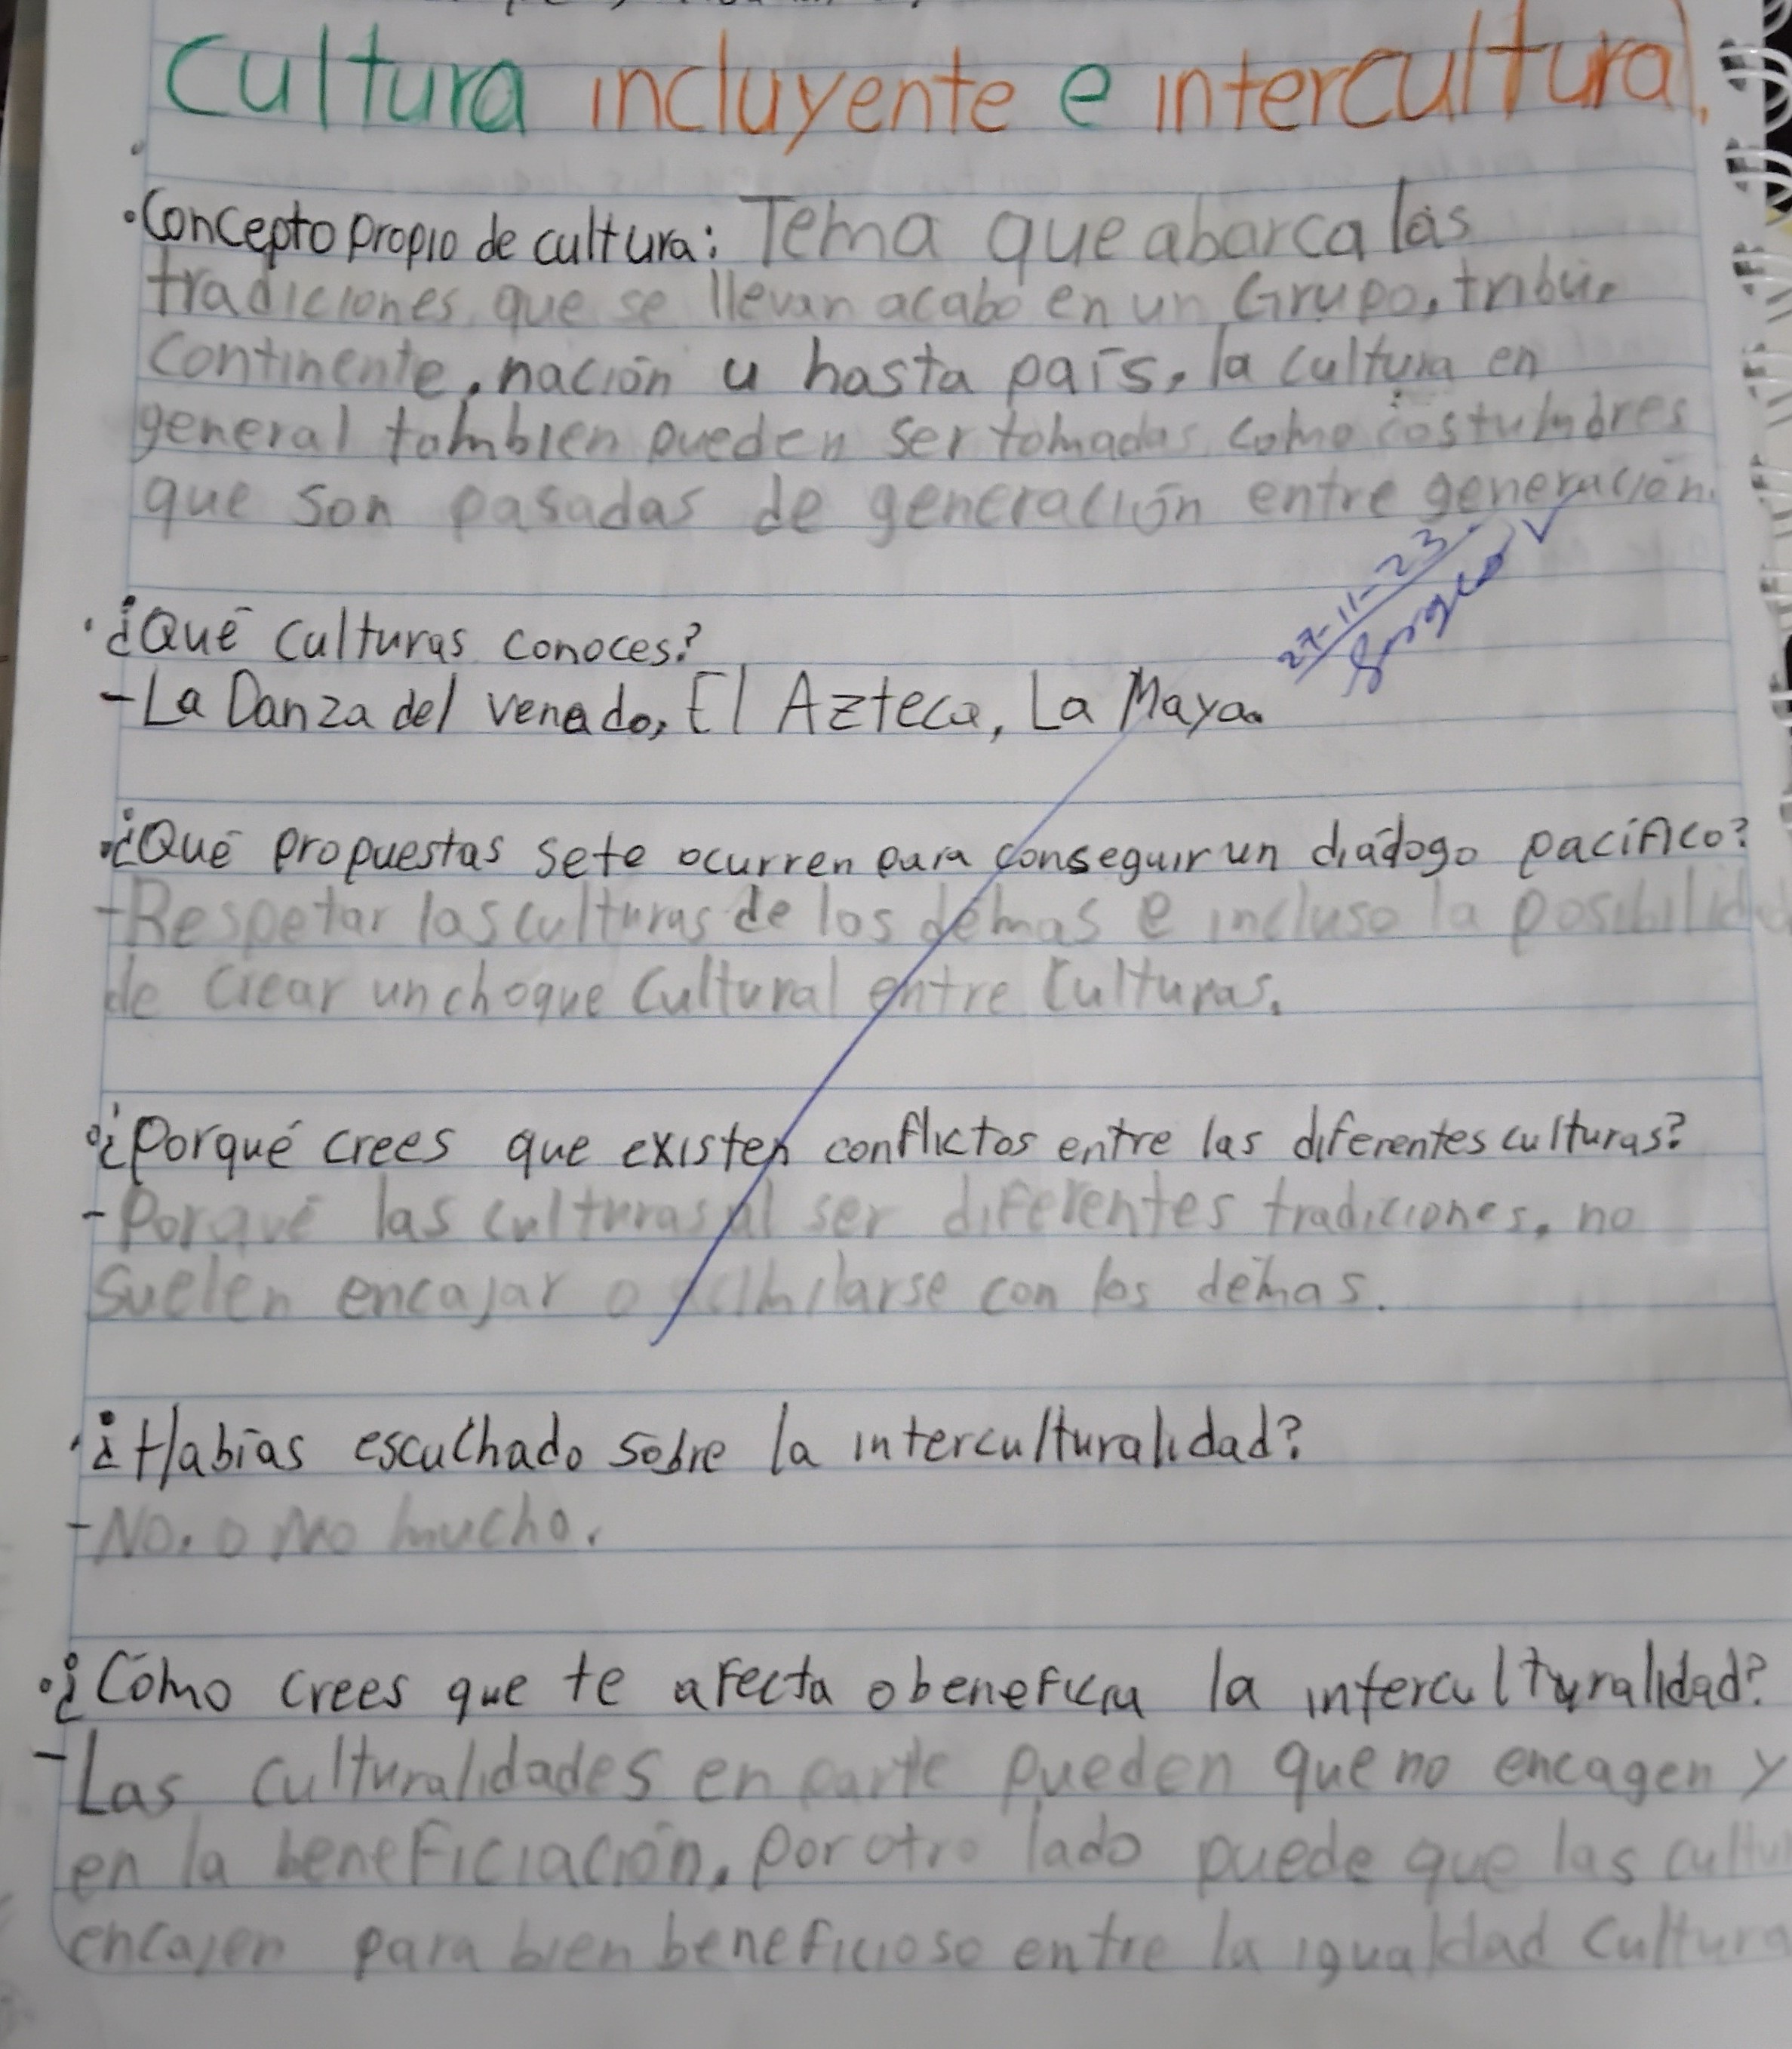 Cultura incluyente e intercultural.
• Concepto propio de cultura: Tema que abarca las
tradiciones que se llevan acabo en un Grupo, tribu,
continente, nación u hasta país, la cultura en
general tambien pueden ser tomadas como costumbres
que son pasadas de generación entre generación.
27-11-23
• ¿Qué culturas conoces?
- La Danza del venado, El Azteca, La Maya.
• ¿Qué propuestas sete ocurren para conseguir un diádogo pacífico?
- Respetar las culturas de los demas e incluso la posibilid
de crear un choque cultural entre culturas.
• ¿Porqué crees que existen conflictos entre las diferentes culturas?
- Porqué las culturas al ser diferentes tradiciones, no
suelen encajar o con los demas.
• ¿Habías escuchado sobre la interculturalidad?
- No, o No mucho.
• ¿Cómo crees que te afecta o beneficia la interculturalidad?
- Las culturalidades en parte pueden que no encagen y
en la beneficiación, por otro lado puede que las cultu
encajen para bien beneficioso entre la igualdad cultura